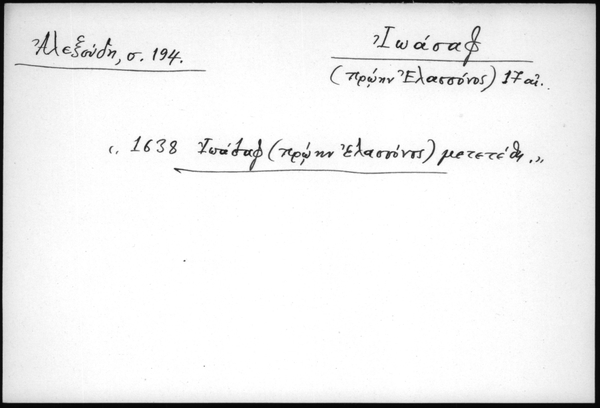 Ἀλεξούδη, σ. 194.
Ἰωάσαφ
(πρῴην Ἐλασσόνος) 17 αἰ.
«. 1638 Ἰωάσαφ (πρῴην Ἐλασσόνος) μετετέθη.»